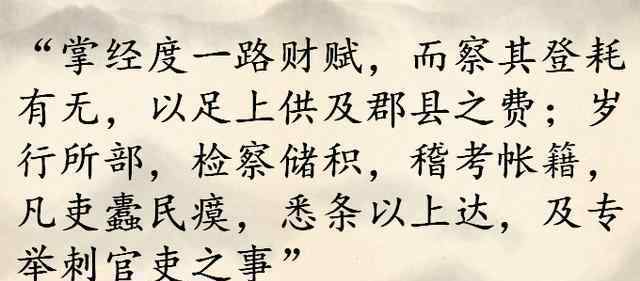 “掌经度一路财赋，而察其登耗
有无，以足上供及郡县之费；岁
行所部，检察储积，稽考帐籍，
凡吏蠹民瘼，悉条以上达，及专
举刺官吏之事”